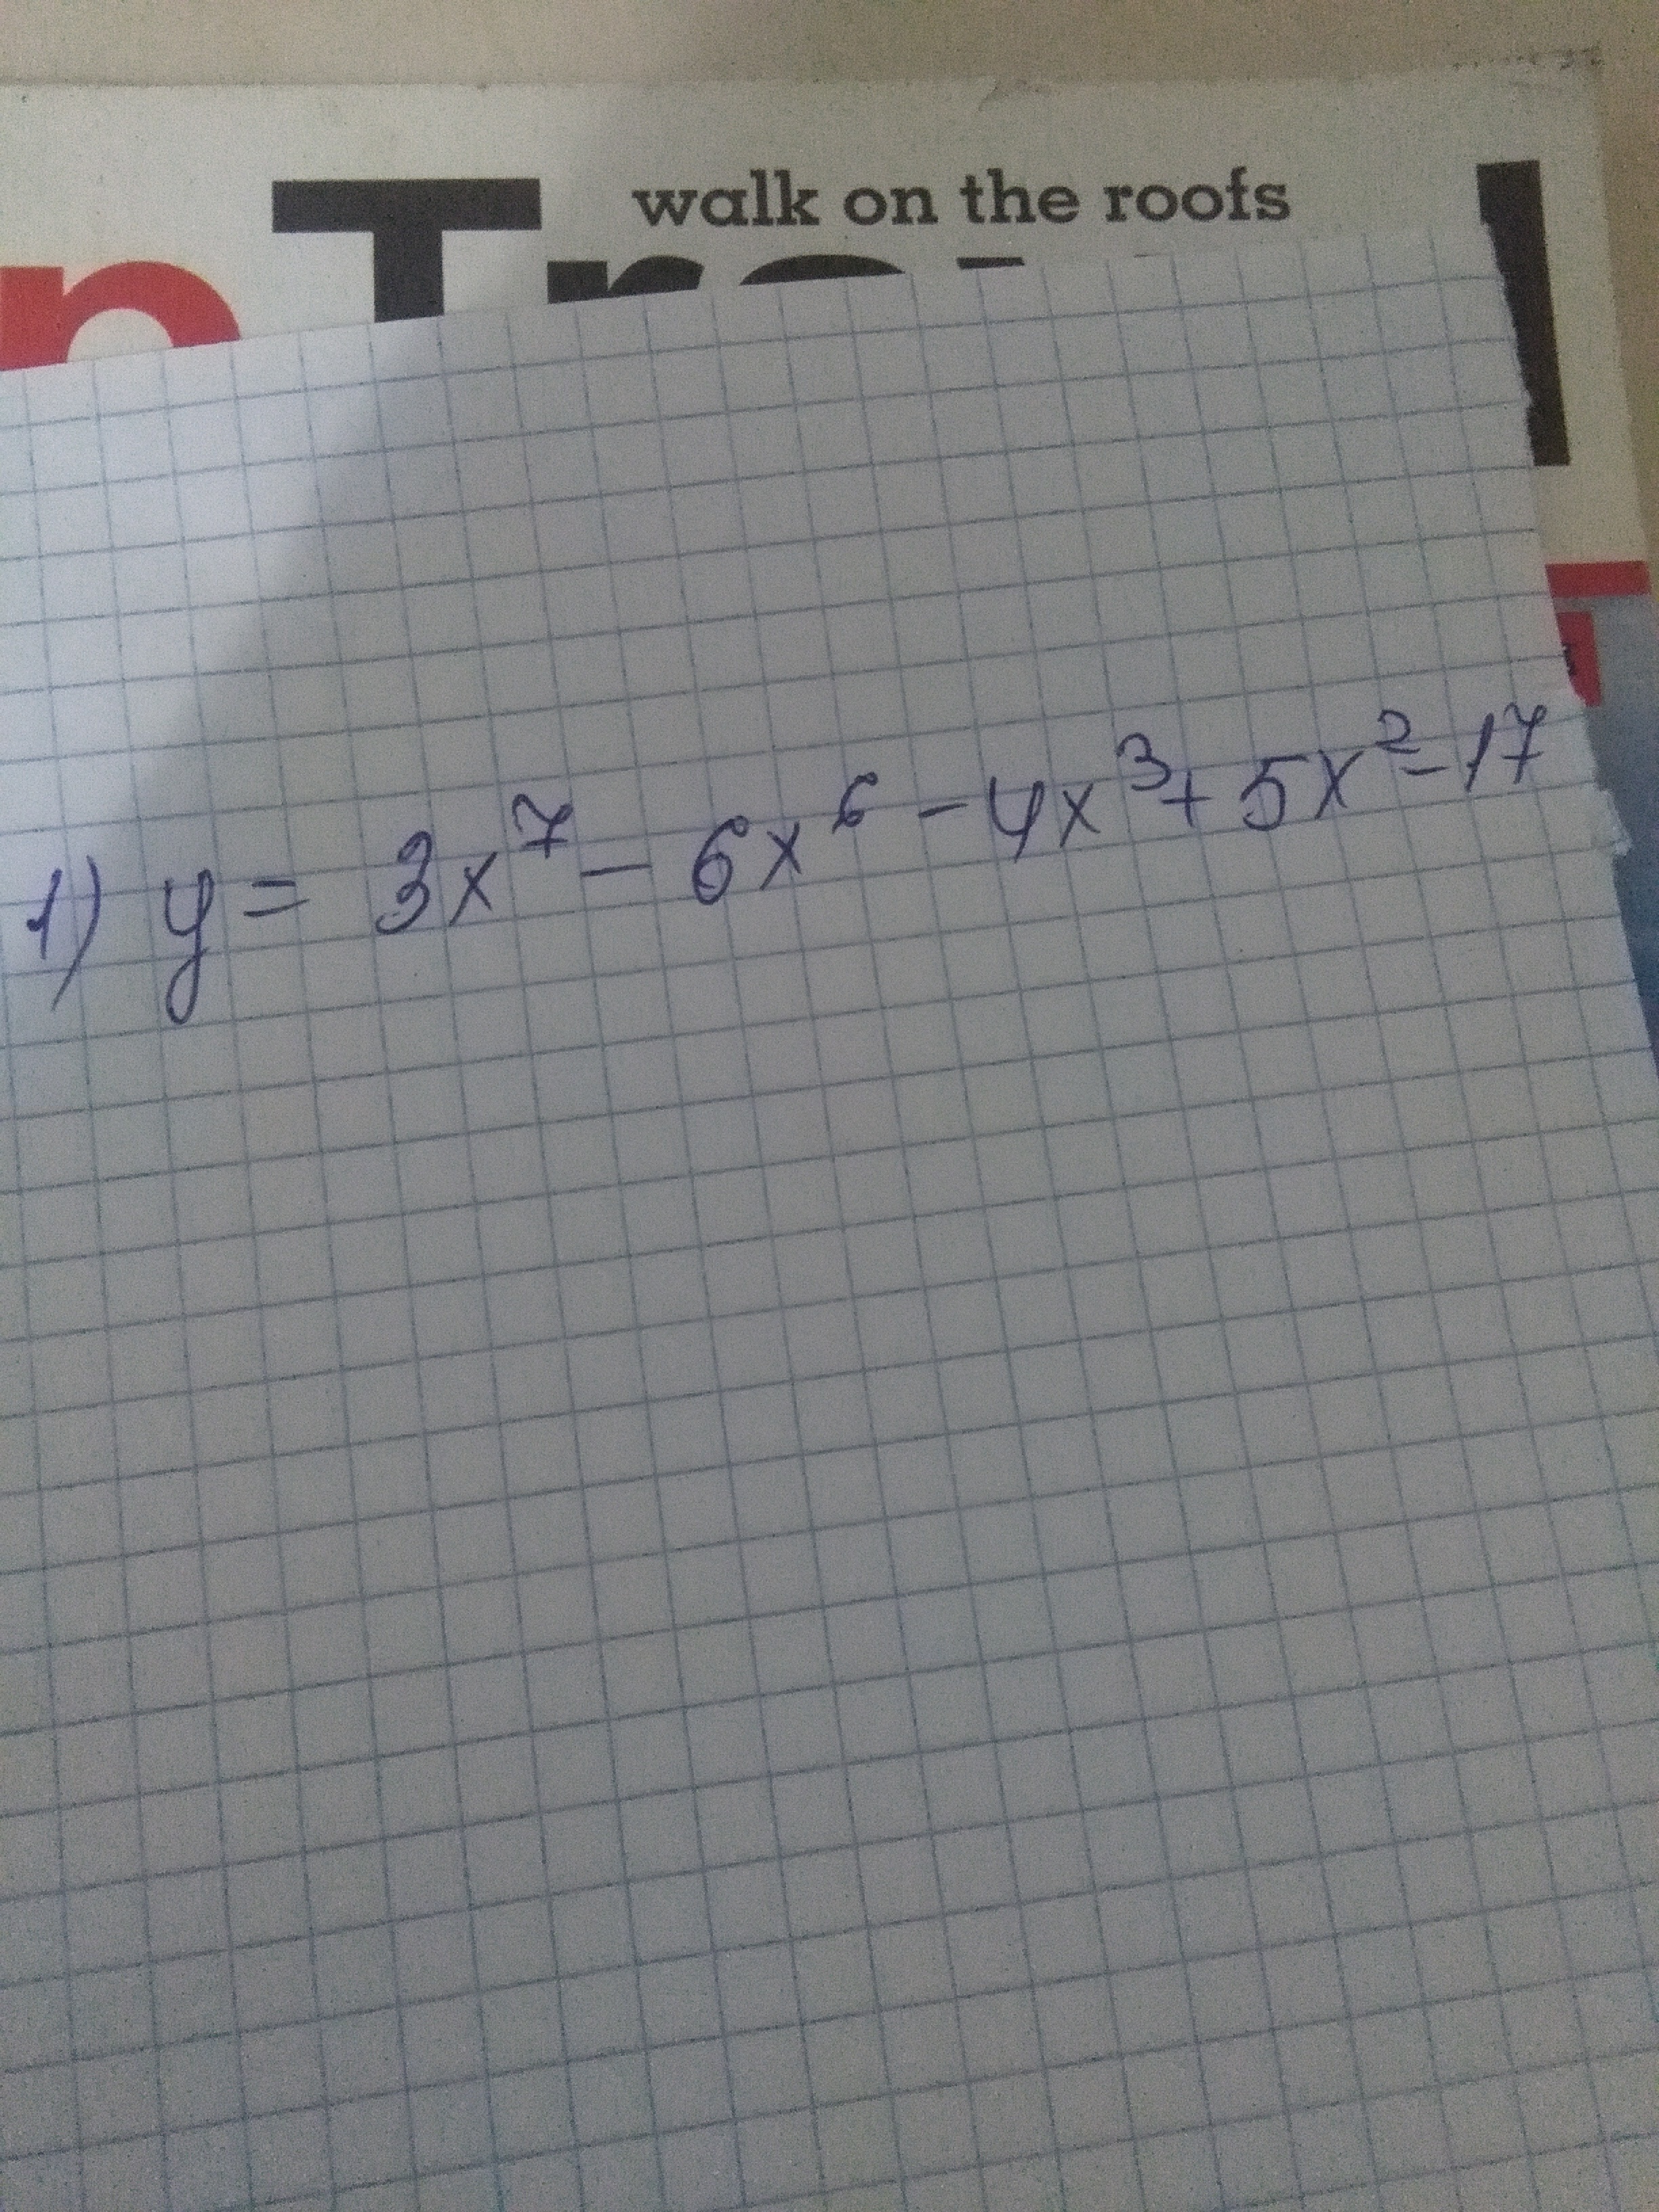 walk on the roofs
1) y = 3x⁷ - 6x⁶ - 4x³ + 5x² - 17